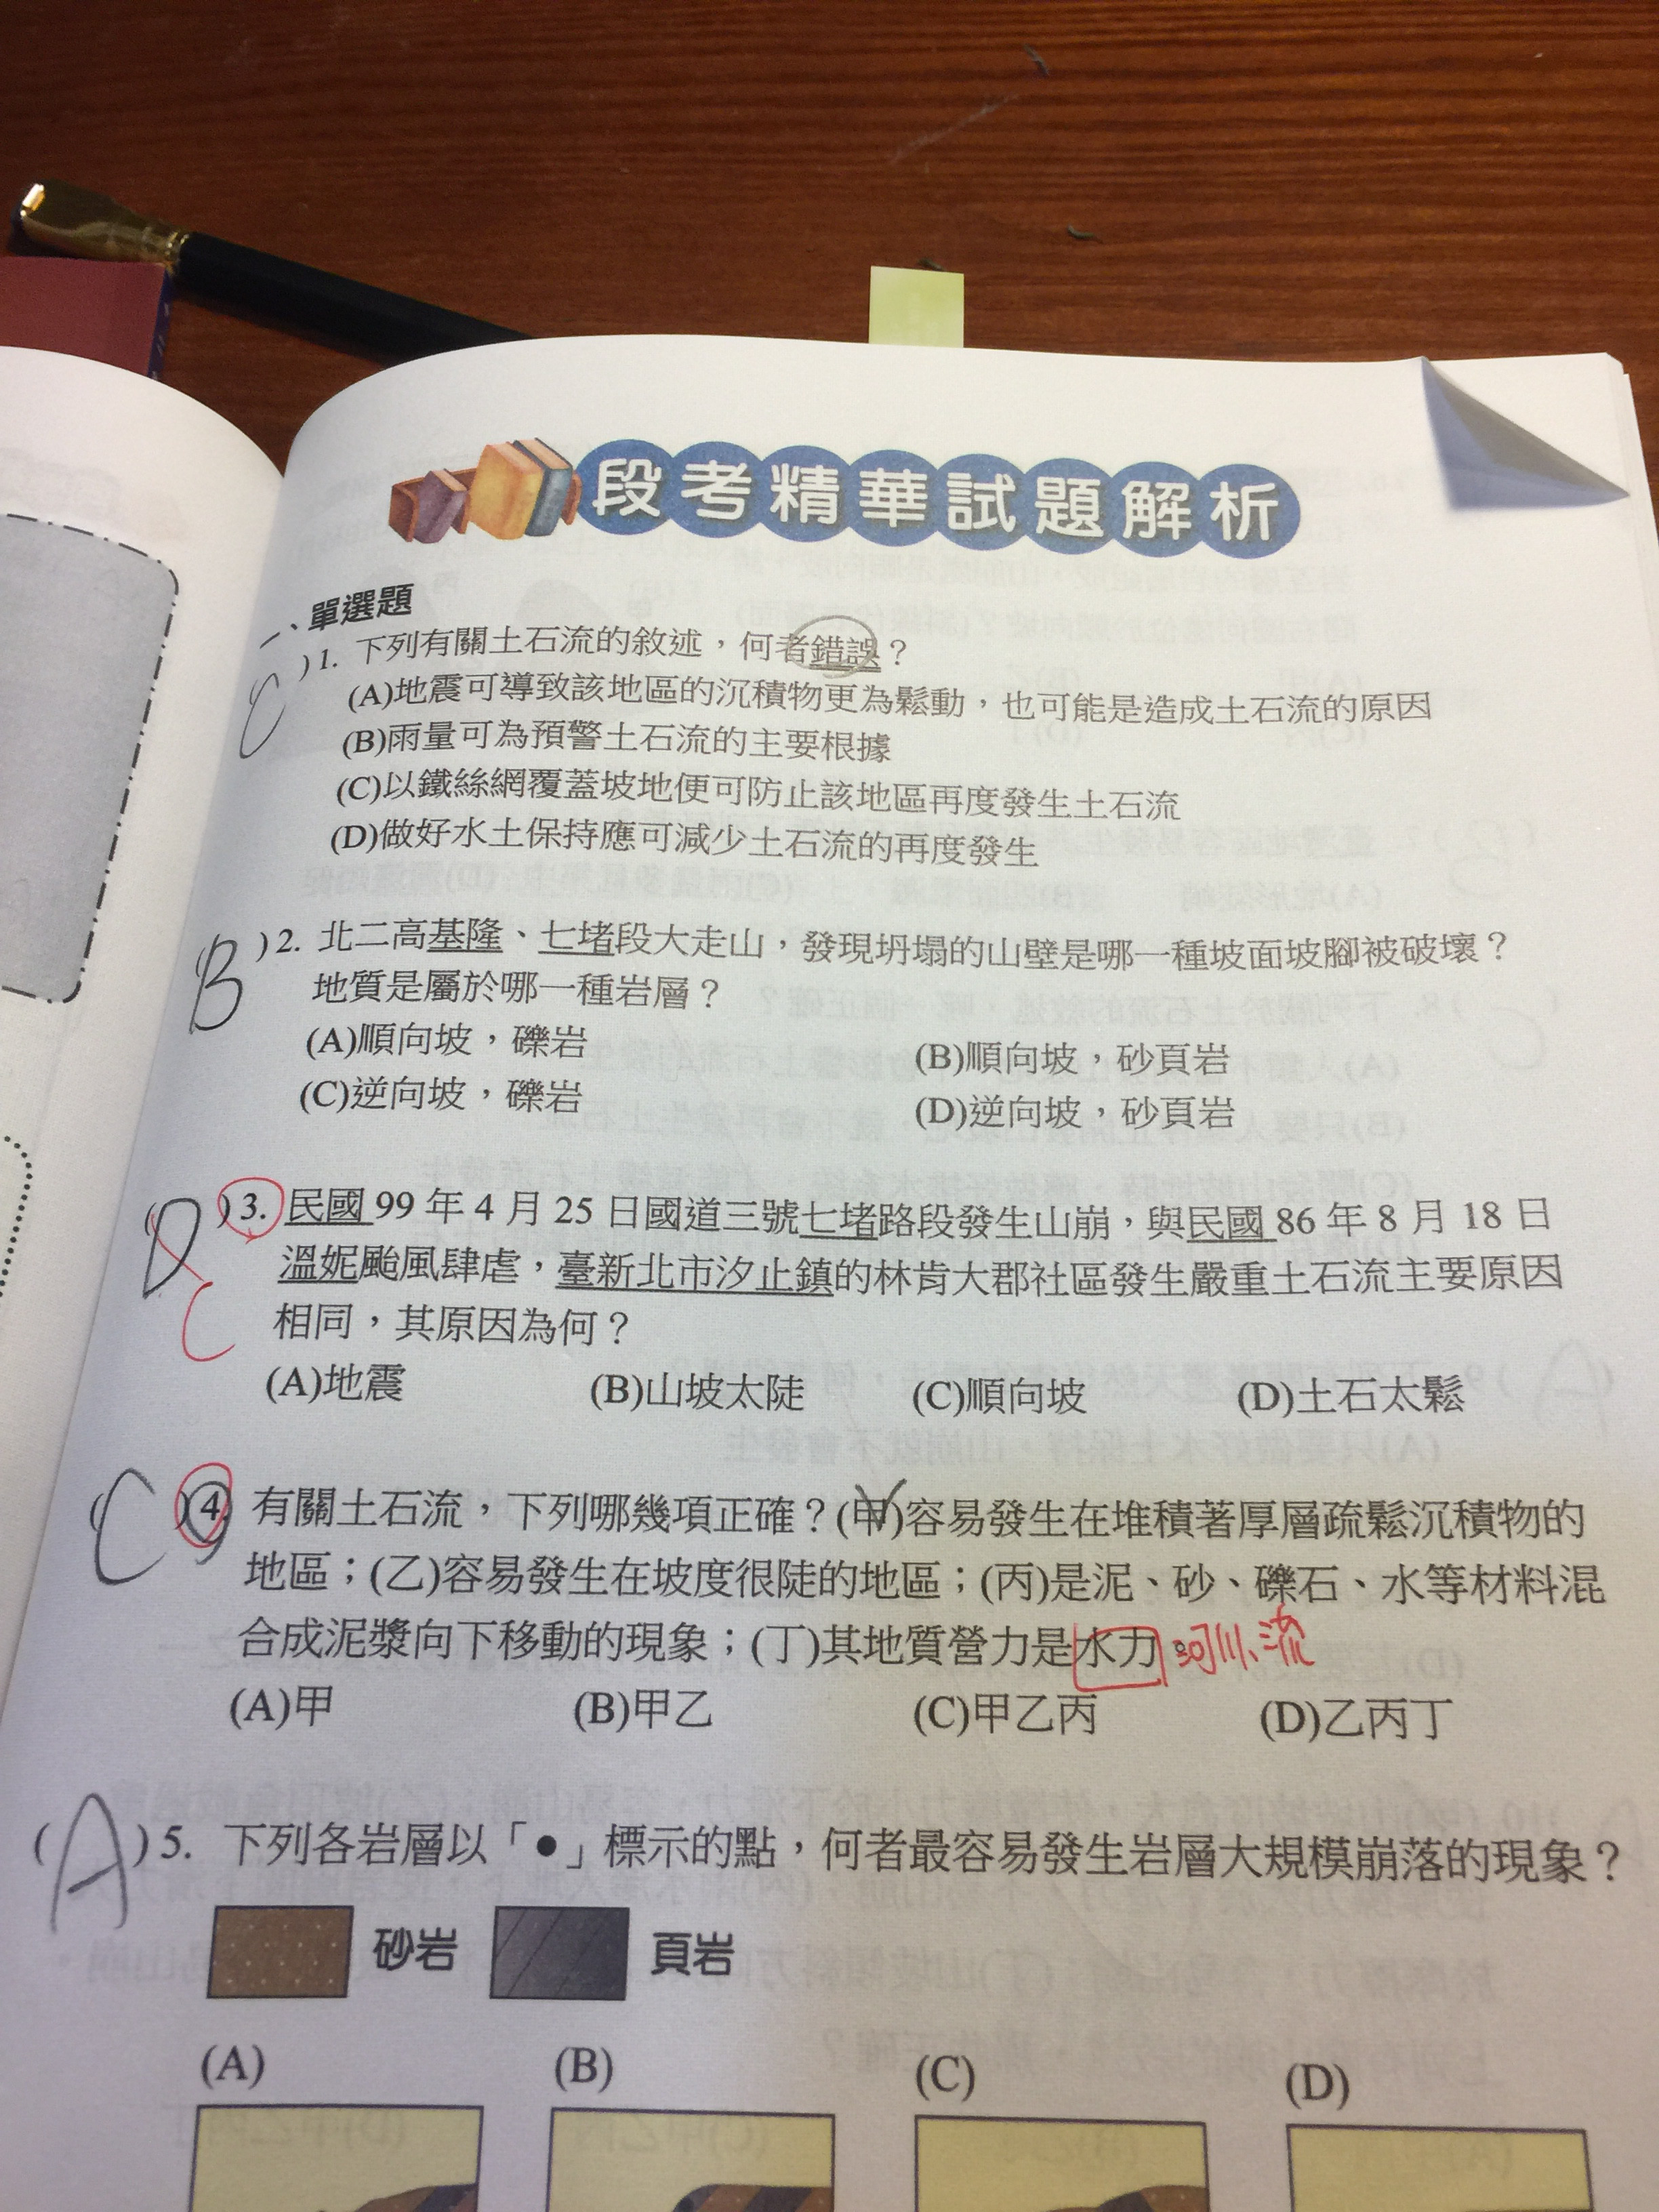 段考精華試題解析
一、單選題
C )1. 下列有關土石流的敘述，何者錯誤？
(A)地震可導致該地區的沉積物更為鬆動，也可能是造成土石流的原因
(B)雨量可為預警土石流的主要根據
(C)以鐵絲網覆蓋坡地便可防止該地區再度發生土石流
(D)做好水土保持應可減少土石流的再度發生
B )2. 北二高基隆、七堵段大走山，發現坍塌的山壁是哪一種坡面坡腳被破壞？
地質是屬於哪一種岩層？
(A)順向坡，礫岩 (B)順向坡，砂頁岩
(C)逆向坡，礫岩 (D)逆向坡，砂頁岩
(D )3. 民國 99 年 4 月 25 日國道三號七堵路段發生山崩，與民國 86 年 8 月 18 日
溫妮颱風肆虐，臺新北市汐止鎮的林肯大郡社區發生嚴重土石流主要原因
C
相同，其原因為何？
(A)地震 (B)山坡太陡 (C)順向坡 (D)土石太鬆
(C )4. 有關土石流，下列哪幾項正確？(甲)容易發生在堆積著厚層疏鬆沉積物的
地區；(乙)容易發生在坡度很陡的地區；(丙)是泥、砂、礫石、水等材料混
合成泥漿向下移動的現象；(丁)其地質營力是水力。河川、流
(A)甲 (B)甲乙 (C)甲乙丙 (D)乙丙丁
(A )5. 下列各岩層以「●」標示的點，何者最容易發生岩層大規模崩落的現象？
砂岩 頁岩
(A) (B) (C) (D)